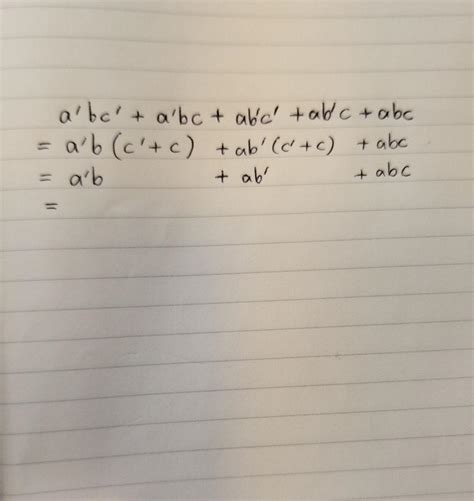 a'bc' + a'bc + ab'c' + ab'c + abc
= a'b (c'+c) + ab' (c'+c) + abc
= a'b + ab' + abc
=